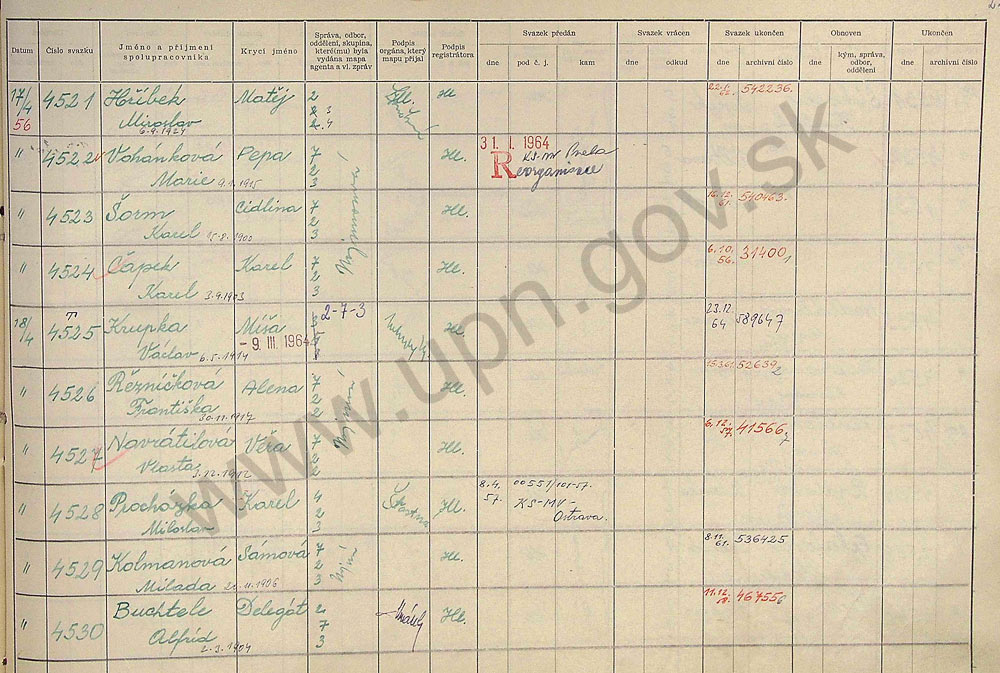 Datum
Číslo svazku
Jméno a příjmení spolupracovníka
Krycí jméno
Správa, odbor, oddělení, skupina, které(mu) byla vydána mapa agenta a vl. zpráv
Podpis orgána, který mapu přijal
Podpis registrátora
Svazek předán
dne
pod č. j.
kam
Svazek vrácen
dne
odkud
Svazek ukončen
dne
archivní číslo
Obnoven
dne
kým, správa, odbor, oddělení
Ukončen
dne
archivní číslo
17/4 56 4521 Hříbek Matěj 2 Hl. 542236.
Miroslav 2 3
6.9.1924 2 4
" 4522 Vohánková Pepa 7 Hl. 31. I. 1964
Marie 9.1.1915 2 Reorganisace
3
" 4523 Šorm Cidlina 7 Hl. 16.12. 61. 510463.
Karel 25.8.1900 2
3
" 4524 Čapek Karel 7 Hl. 6.10. 56. 31400
Karel 3.9.1903 2
3
18/4 T 4525 Krupka Míša 2-7-3 Hl. 23.12. 64 589647
Václav 6.5.1914 - 9. III. 1964
" 4526 Řezníčková Alena 7 Hl. 52639
Františka 2
30.11.1917 2
" 4527 Navrátilová Věra 7 Hl. 6.12. 57. 41566
Vlasta 2
3.12.1912 2
" 4528 Procházka Karel 4 Šťastná Hl. 8.4. 57. 00551/101-57.
Miloslav 2 KS-MV-
3 Ostrava.
" 4529 Kolmanová Sámová 7 Hl. 8.11. 61. 536425
Milada 2
3
" 4530 Buchtele Delegát 2 Hl. 11.12. 467556
Alfréd 7
2.3.1904 3
www.upn.gov.sk